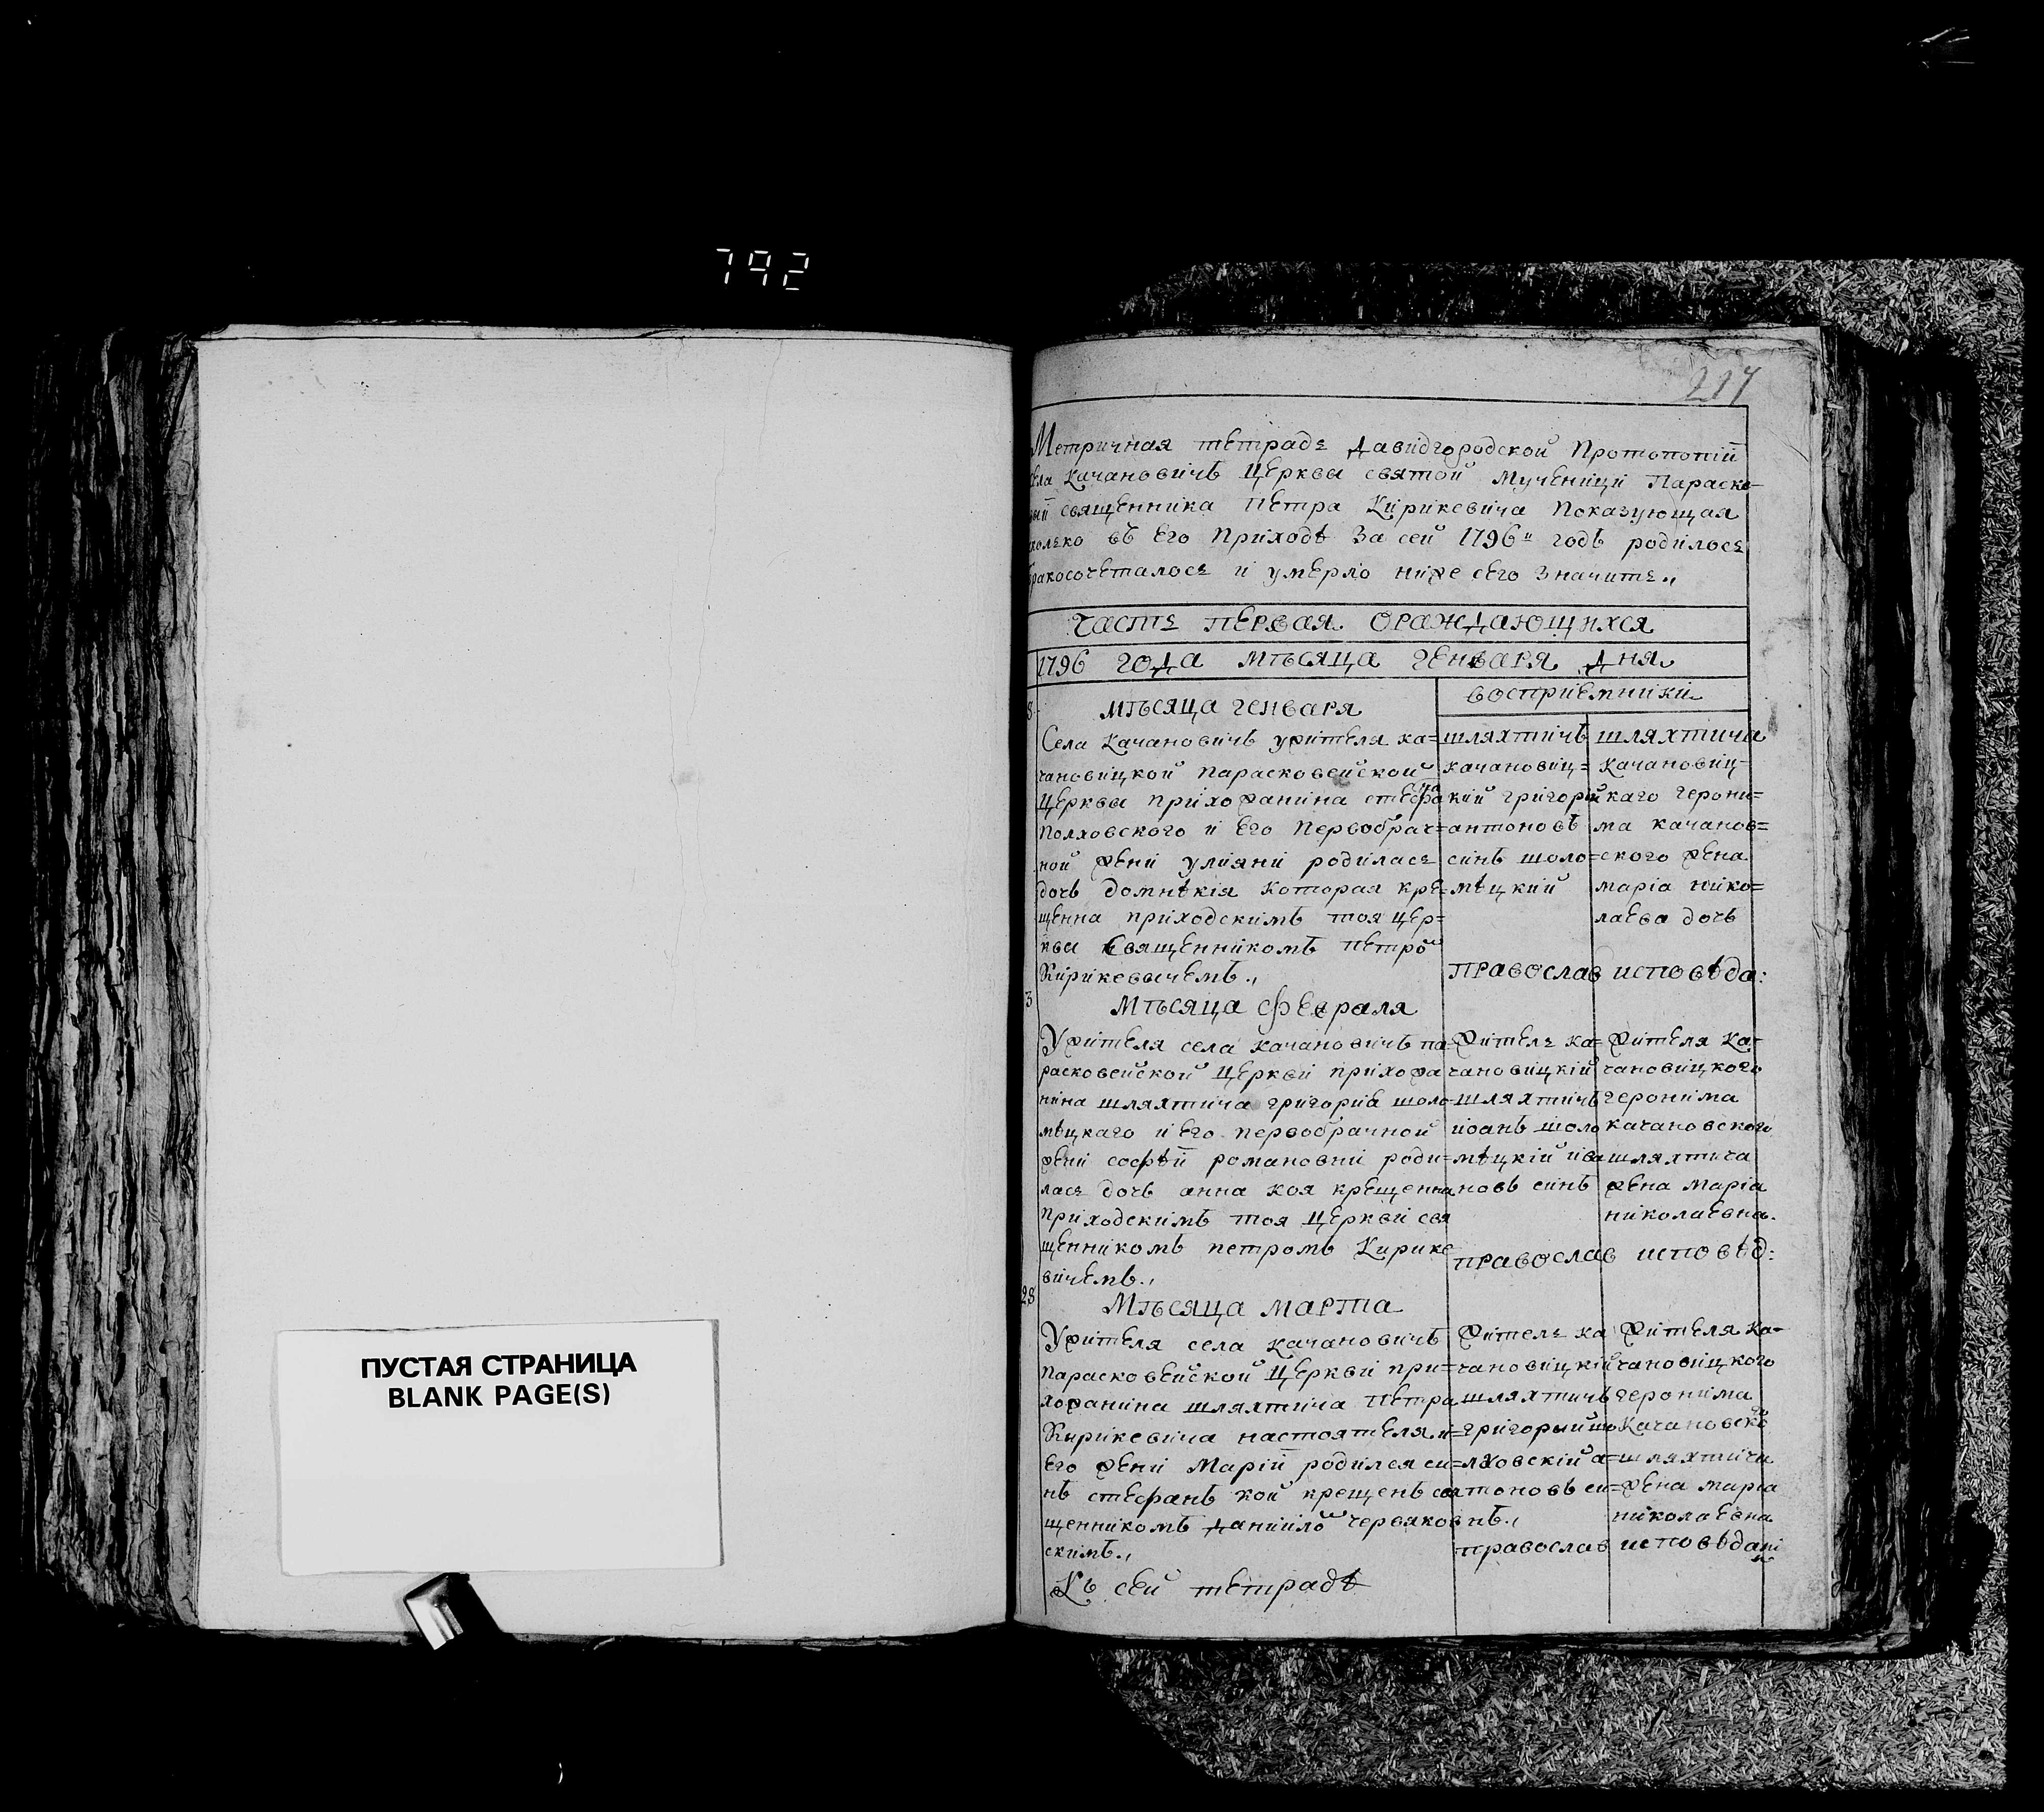 792
217
Метричная тетрадь Давидгородской Протопопіи
села Качановичъ Церквы святой Мученици Параске-
выи священника Петра Кирикевича Показующая
колько въ Его Приходѣ За сей 1796 годъ родилось
бракосочеталось и умерло ниже сего Значить.,
Часть первая ораждающихся
1796 года мѣсяца генваря дня
8
мѣсяца генваря
восприемники
Села Качановичъ ужителя ка=
чановицкой Парасковейской
Церквы прихожанина стефана
Полховского и Его Первобрач=
ной жени улияни родилась
дочь домнѣкія которая кре=
щенна приходскимъ тоя цер=
квы священникомъ петром
Кирикевычемъ.,
шляхтичъ
качановиц=
кий григорий
антоновъ
синъ шоло=
мѣцкий
шляхтича
качановиц-
каго герони=
ма качанов=
ского жена
маріа нико=
лаева дочь
православ исповѣда:
3
Мѣсяца февраля
Ужителя села качановичъ па-
расковейской Церкви прихожа
нина шляхтича григория шоло-
мѣцкаго и Его первобрачной
жени софѣи романовни роди=
лась дочь анна коя крещенна
приходскимъ тоя Церкви свя
щенникомъ петромъ Кирике
вичемъ.,
житель ка=
чановицкій
шляхтичъ
иоанъ шоло
мѣцкій ива
новъ синъ
жителя ка-
чановицкого
геронима
качановского
шляхтича
жена маріа
николаевна.
православ исповѣд:
28
Мѣсяца марта
Ужителя села качановичъ
парасковейской Церкви при=
хожанина шляхтича Петра
Кирикевича настоятеля и=
Его жени Маріи родился си=
нъ стефанъ кой крещенъ свя
щенникомъ даниилом червяков
скимъ.,
житель ка
чановицкій
шляхтичъ
григорый шо
лховскій а=
нтоновъ си=
нъ.,
жителя ка-
чановицкого
геронима
качановского
шляхтича
жена маріа
николаевна
православ исповѣдани
Къ сей тетрадѣ
ПУСТАЯ СТРАНИЦА
BLANK PAGE(S)